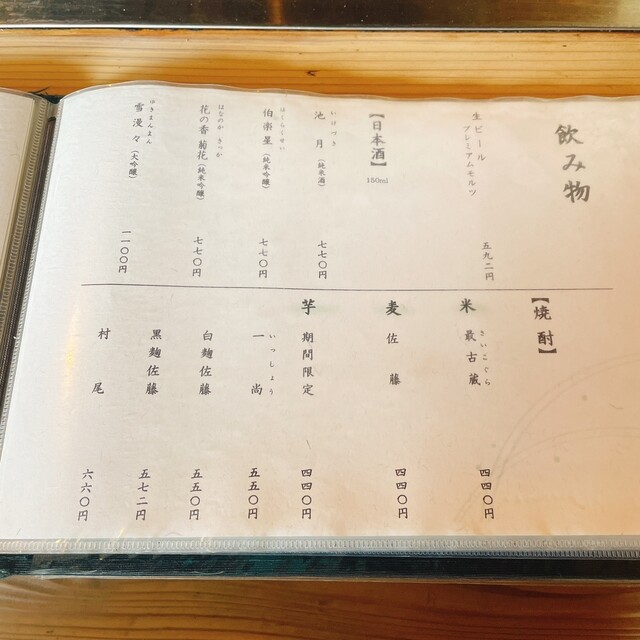 飲み物
生ビール
プレミアムモルツ
五九二円
【日本酒】
150ml
いけづき
池月(純米酒)
七七〇円
伯楽星(純米吟醸)
七七〇円
はなのか きっか
花の香 菊花(純米吟醸)
七七〇円
ゆきまんまん
雪漫々(大吟醸)
一一〇〇円
【焼酎】
米
さいこぐら
最古蔵
四四〇円
麦
佐藤
四四〇円
芋
期間限定
四四〇円
いっしょう
一尚
五五〇円
白麹佐藤
五五〇円
黒麹佐藤
五七二円
村尾
六六〇円